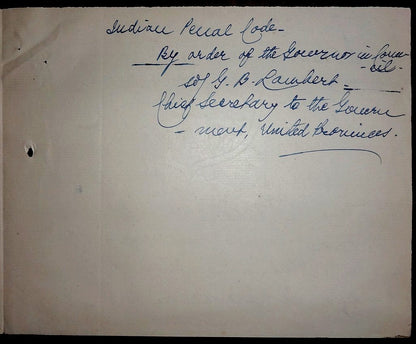 Indian Penal Code-
By order of the Governor in Coun-
-cil-
sd/ G. B. Lambert-
Chief Secretary to the Govern
-ment, United Provinces.